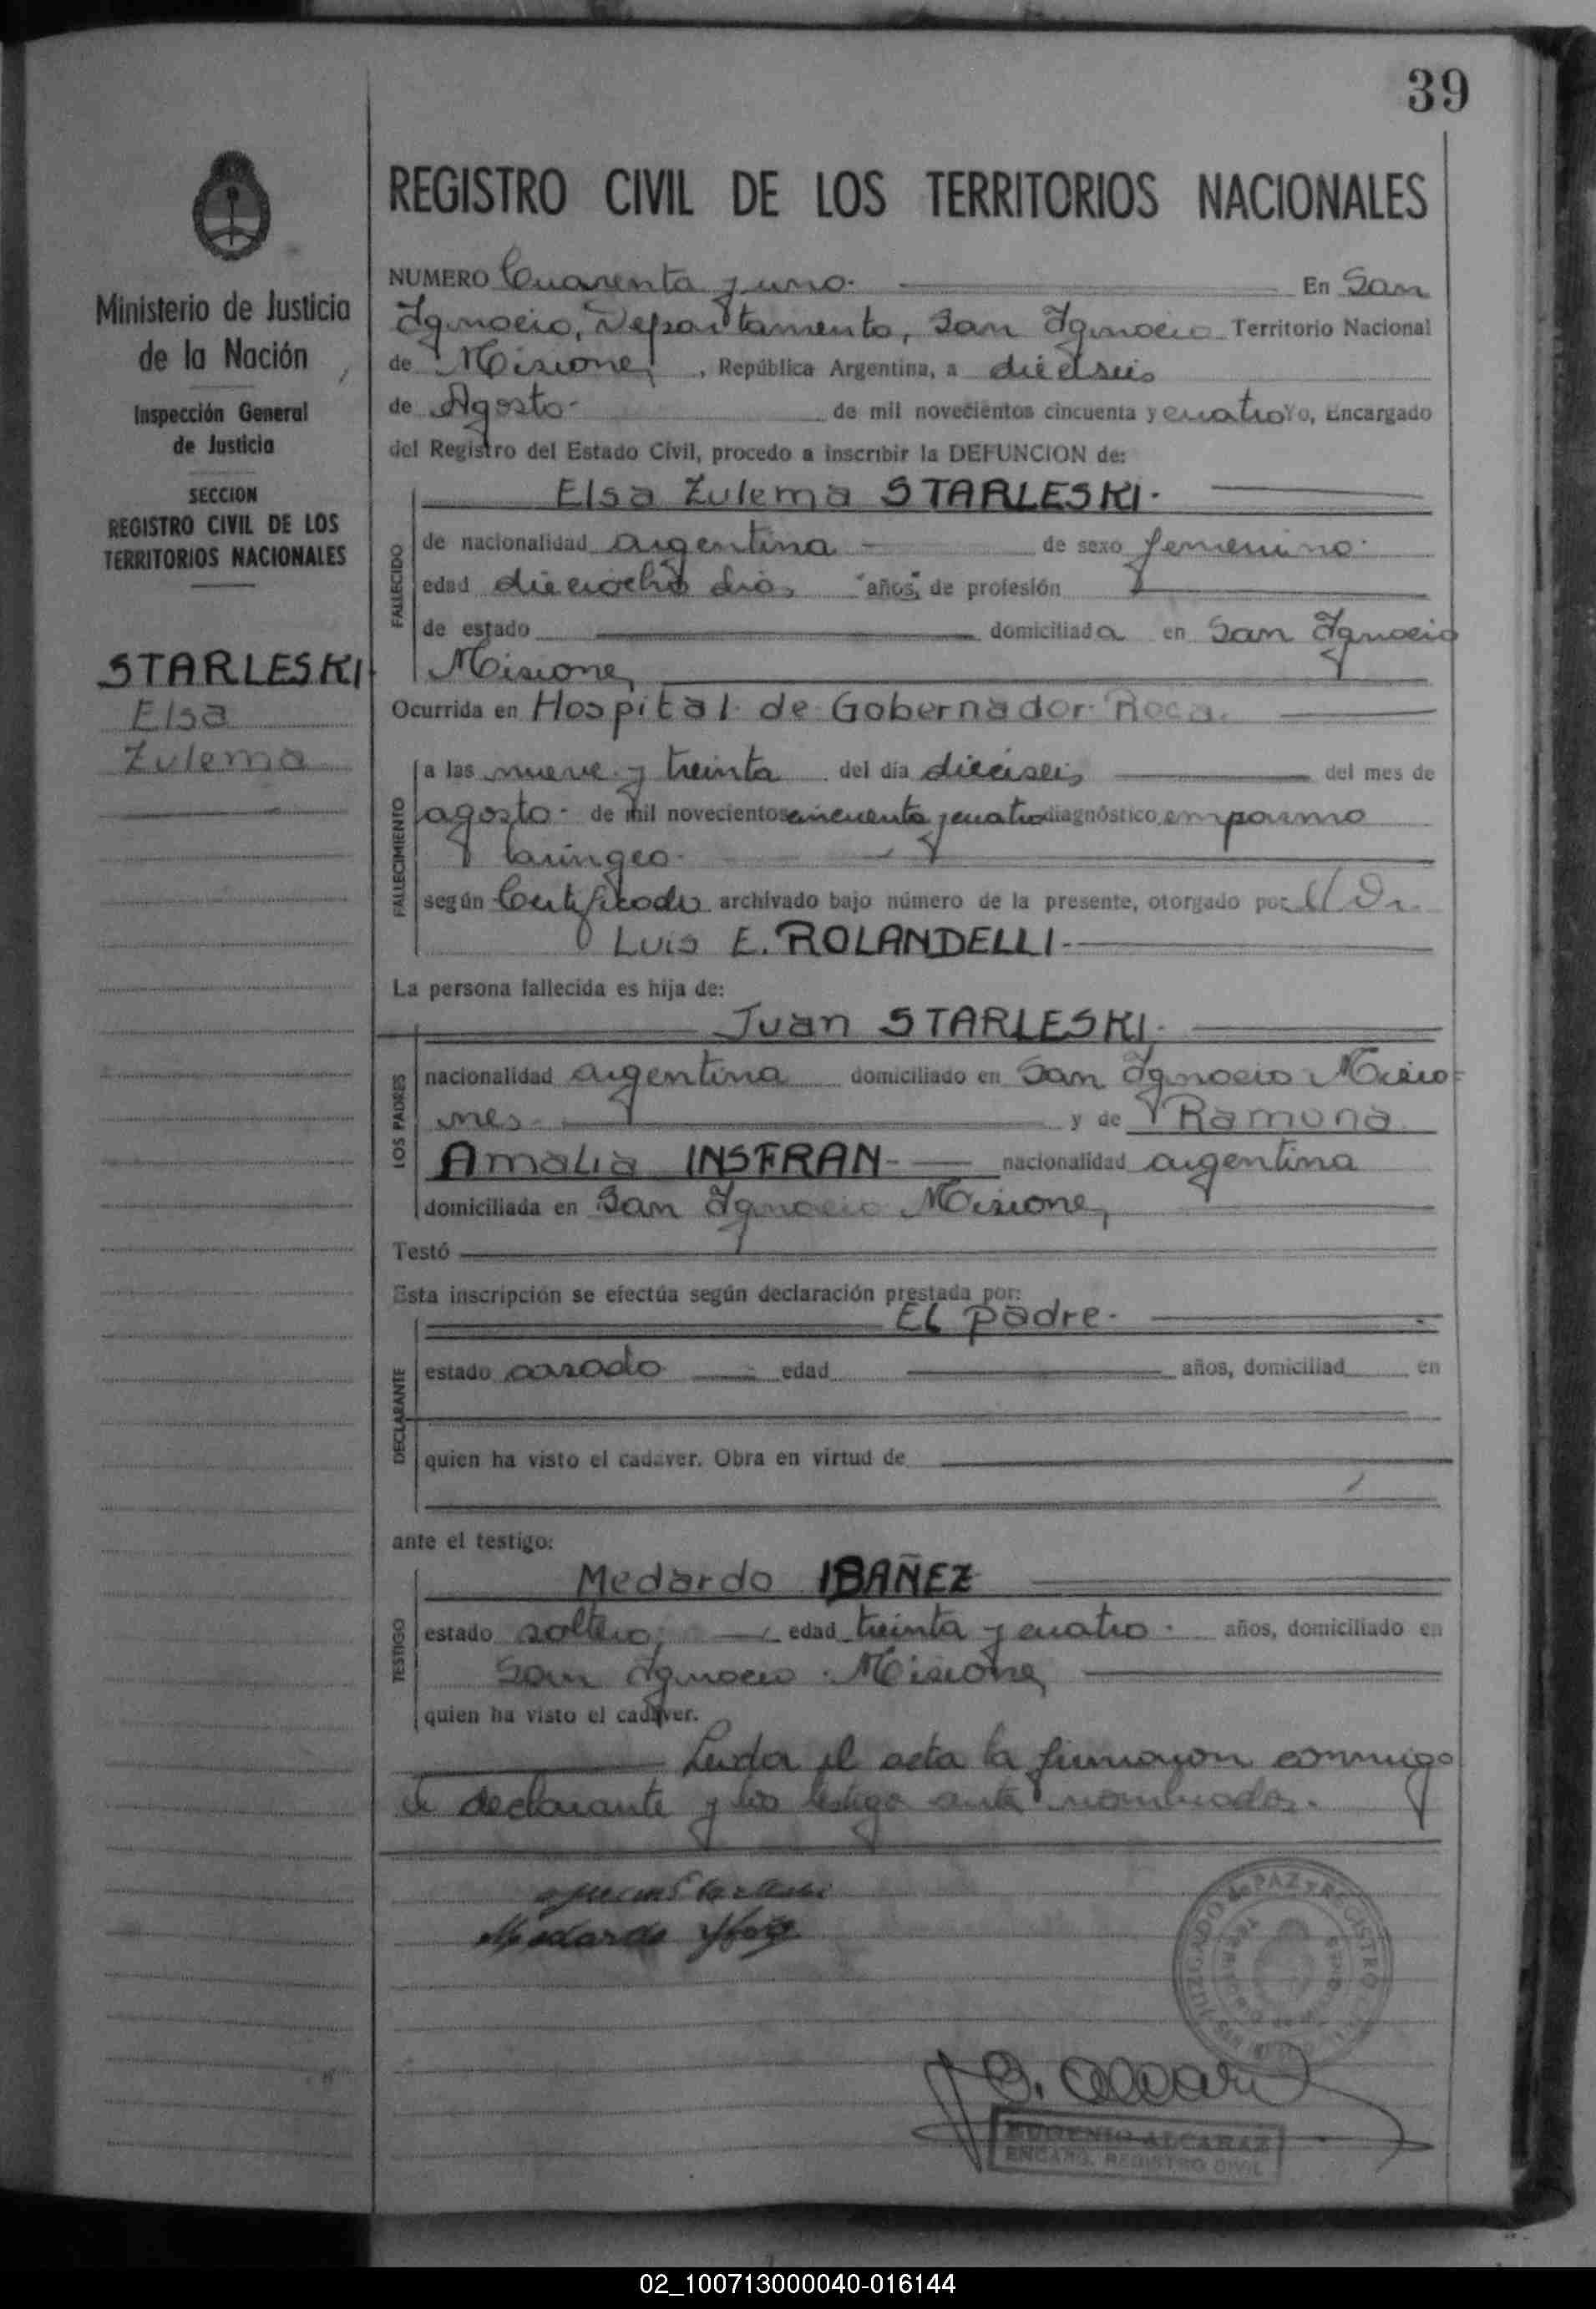 39
REGISTRO CIVIL DE LOS TERRITORIOS NACIONALES
Ministerio de Justicia
de la Nación
Inspección General
de Justicia
SECCION
REGISTRO CIVIL DE LOS
TERRITORIOS NACIONALES
STARLESKI
Elsa
Zulema
NUMERO Cuarenta y uno. En San
Ignacio, Departamento, San Ignacio Territorio Nacional
de Misiones, República Argentina, a dieciseis
de Agosto- de mil novecientos cincuenta y cuatro Yo, Encargado
del Registro del Estado Civil, procedo a inscribir la DEFUNCION de:
Elsa Zulema STARLESKI.
FALLECIDO
de nacionalidad argentina de sexo femenino.
edad dieciocho días "años", de profesión
de estado domiciliada en San Ignacio
Misiones
Ocurrida en Hospital de Gobernador Roca.
FALLECIMIENTO
a las nueve y treinta del día dieciseis del mes de
agosto- de mil novecientos cincuenta y cuatro diagnóstico
laringeo.
según Certificado archivado bajo número de la presente, otorgado por el Dr.
Luis E. ROLANDELLI.
La persona fallecida es hija de:
Juan STARLESKI.
LOS PADRES
nacionalidad argentina domiciliado en San Ignacio Misio=
nes y de Ramona
Amalia INSFRAN- nacionalidad argentina
domiciliada en San Ignacio Misiones
Testó
Esta inscripción se efectúa según declaración prestada por:
EL padre.
DECLARANTE
estado casado edad años, domiciliad en
quien ha visto el cadaver. Obra en virtud de
ante el testigo:
Medardo IBAÑEZ
TESTIGO
estado soltero, edad treinta y cuatro. años, domiciliado en
San Ignacio. Misiones
quien ha visto el cadaver.
Leida el acta la firmaron conmigo
el declarante y los testigo ante nombrados.
Medardo
JUZGADO de PAZ y REGISTRO
EUGENIO ALCARAZ
ENCARG. REGISTRO CIVIL
02_100713000040-016144